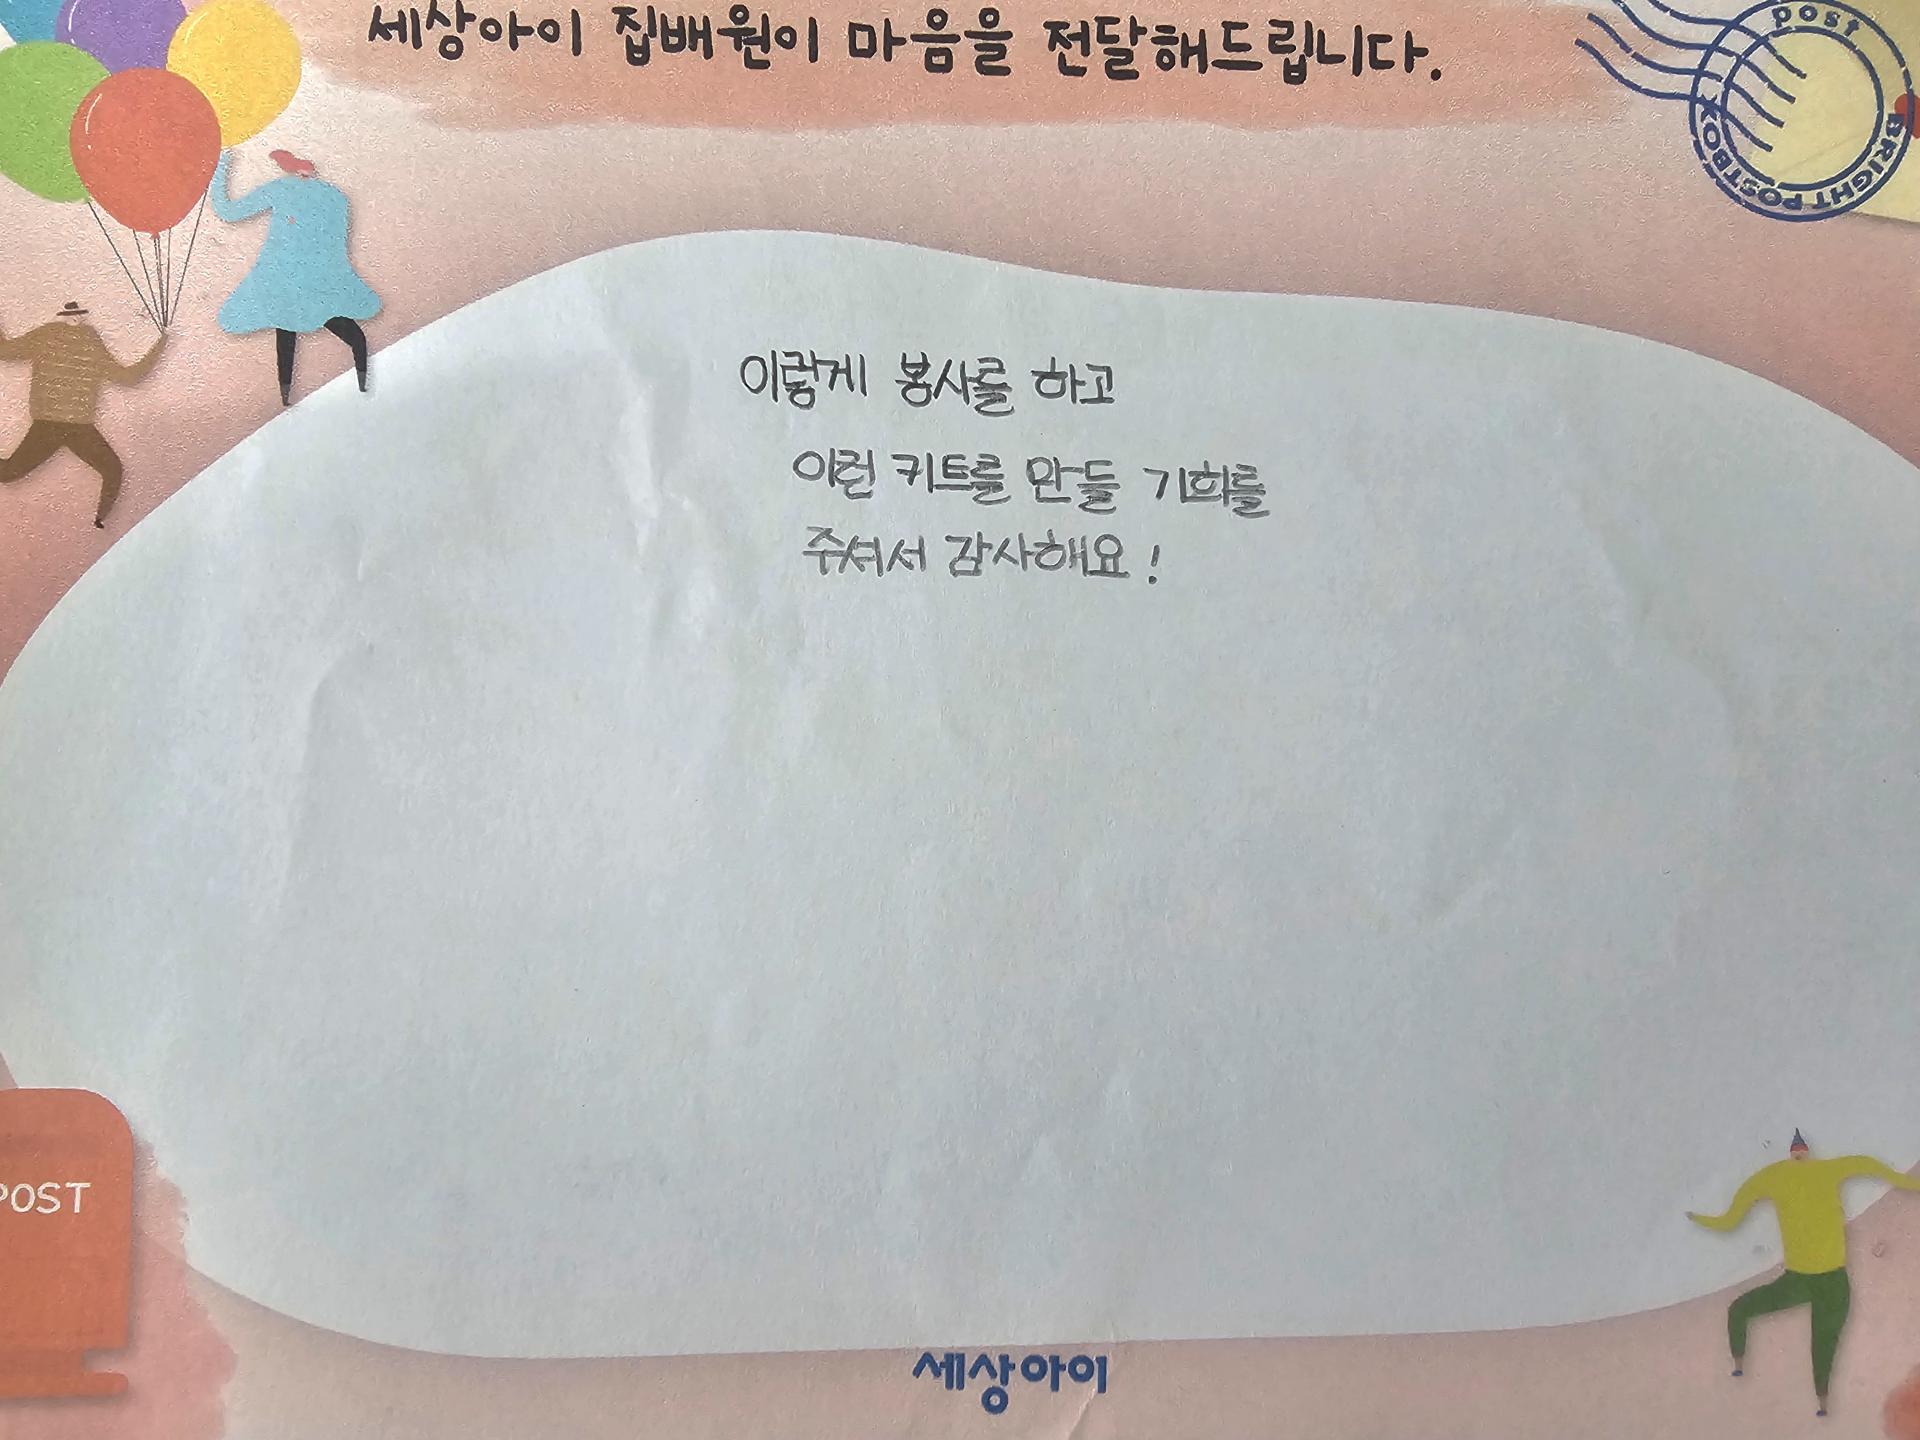 세상아이 집배원이 마음을 전달해드립니다.
post
BRIGHT POSTBOX
이렇게 봉사를 하고
이런 키트를 만들 기회를
주셔서 감사해요!
POST
세상아이